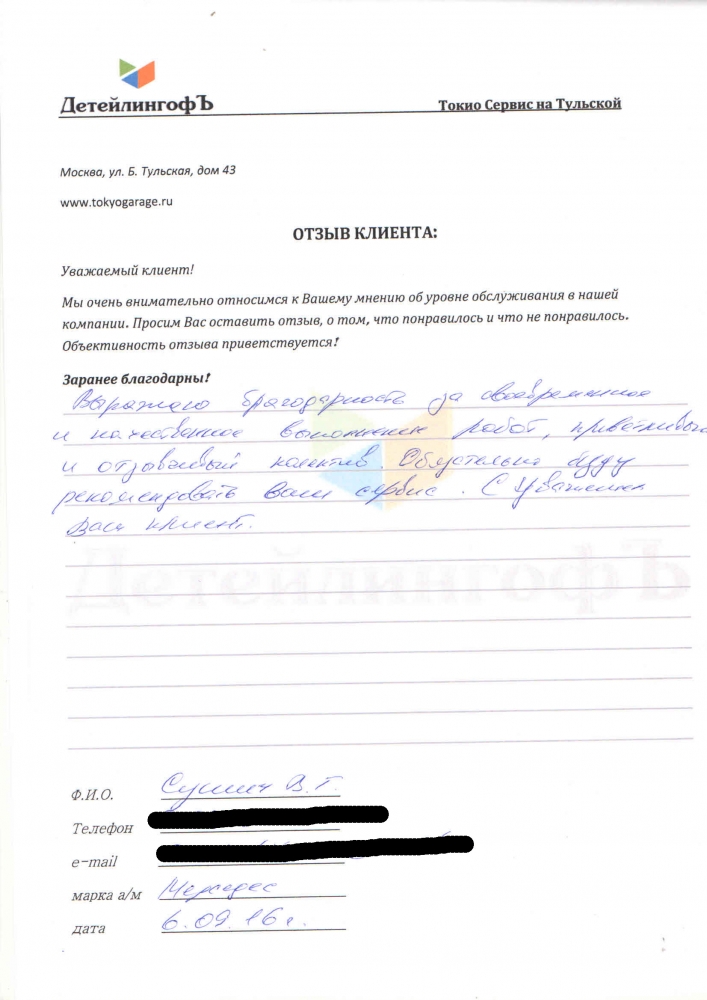 ДетейлингофЪ
Токио Сервис на Тульской
Москва, ул. Б. Тульская, дом 43
www.tokyogarage.ru
ОТЗЫВ КЛИЕНТА:
Уважаемый клиент!
Мы очень внимательно относимся к Вашему мнению об уровне обслуживания в нашей
компании. Просим Вас оставить отзыв, о том, что понравилось и что не понравилось.
Объективность отзыва приветствуется!
Заранее благодарны!
Выражаю благодарность за своевременное
и качественное выполнение работ, приветливый
и отзывчивый колектив. Обязательно буду
рекомендовать Ваш сервис. С Уважением
Ваш клиент.
ДетейлингофЪ
Ф.И.О. В.Г.
Телефон
e-mail
марка а/м Мерседес
дата 6.09.16г.